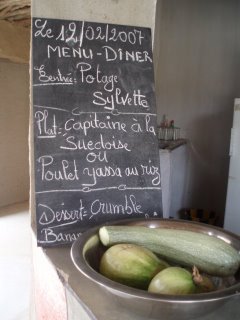 Le 12/02/2007
MENU-DÎNER
Entrée: Potage
Sylvette
Plat: Capitaine à la
Suedoise
ou
Poulet yassa au riz
Désert: Crumble